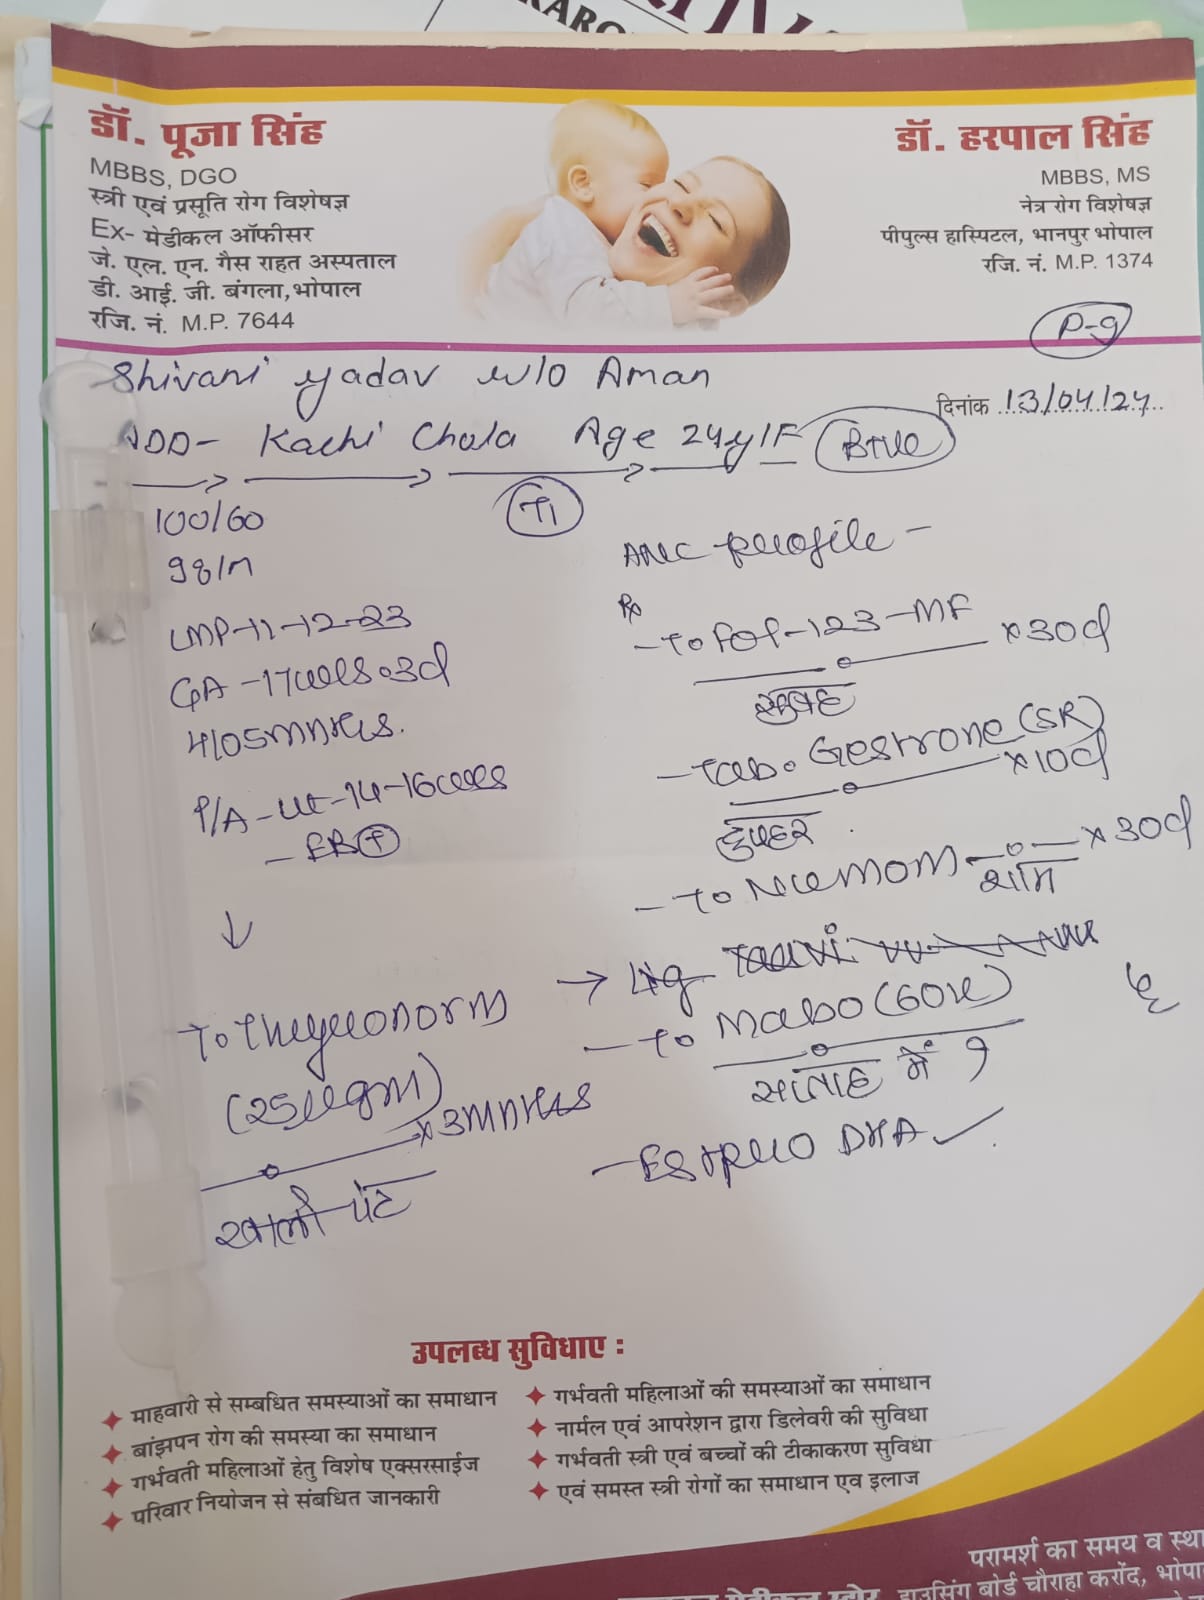 डॉ. पूजा सिंह
MBBS, DGO
स्त्री एवं प्रसूति रोग विशेषज्ञ
Ex- मेडीकल ऑफीसर
जे. एल. एन. गैस राहत अस्पताल
डी. आई. जी. बंगला, भोपाल
रजि. नं. M.P. 7644
डॉ. हरपाल सिंह
MBBS, MS
नेत्र रोग विशेषज्ञ
पीपुल्स हास्पिटल, भानपुर भोपाल
रजि. नं. M.P. 1374
P-9
Shivani Yadav w/o Aman
दिनांक 13/04/24
ADD- Kachi Chola Age 24y/F B+ve
100/60
98/m
LMP-11-12-23
GA-17 3d
4/05
P/A-Ut-14-16
T1
ANC profile-
Rx
-To Fol-123-MF x30d
सुबह
-Tab. Gestrone (SR) x10d
दुपहर
-To Numom x30d
शाम
-To Mabo (60k)
सप्ताह में १
-Estpro DHA
To Thyronorm
(25 x3
खाली पेट
उपलब्ध सुविधाए :
माहवारी से सम्बधित समस्याओं का समाधान
बांझपन रोग की समस्या का समाधान
गर्भवती महिलाओं हेतु विशेष एक्सरसाईज
परिवार नियोजन से संबधित जानकारी
गर्भवती महिलाओं की समस्याओं का समाधान
नार्मल एवं आपरेशन द्वारा डिलेवरी की सुविधा
गर्भवती स्त्री एवं बच्चों की टीकाकरण सुविधा
एवं समस्त स्त्री रोगों का समाधान एव इलाज
परामर्श का समय व स्था
मेडीकल स्टोर, हाउसिंग बोर्ड चौराहा करोंद, भोपा